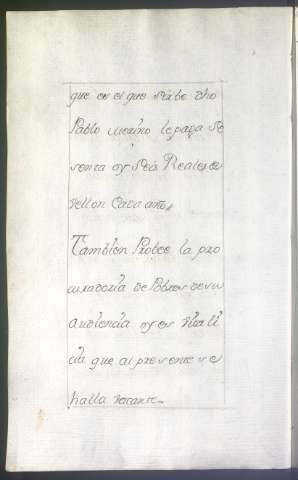 que es el que sirbe dho
Pablo Merino le paga se
senta y seis Reales de
vellon Cada año,,
Tambien Probee la pro
curadoria de Pobres de su
Audiencia y es
que al presente se
halla vacante.